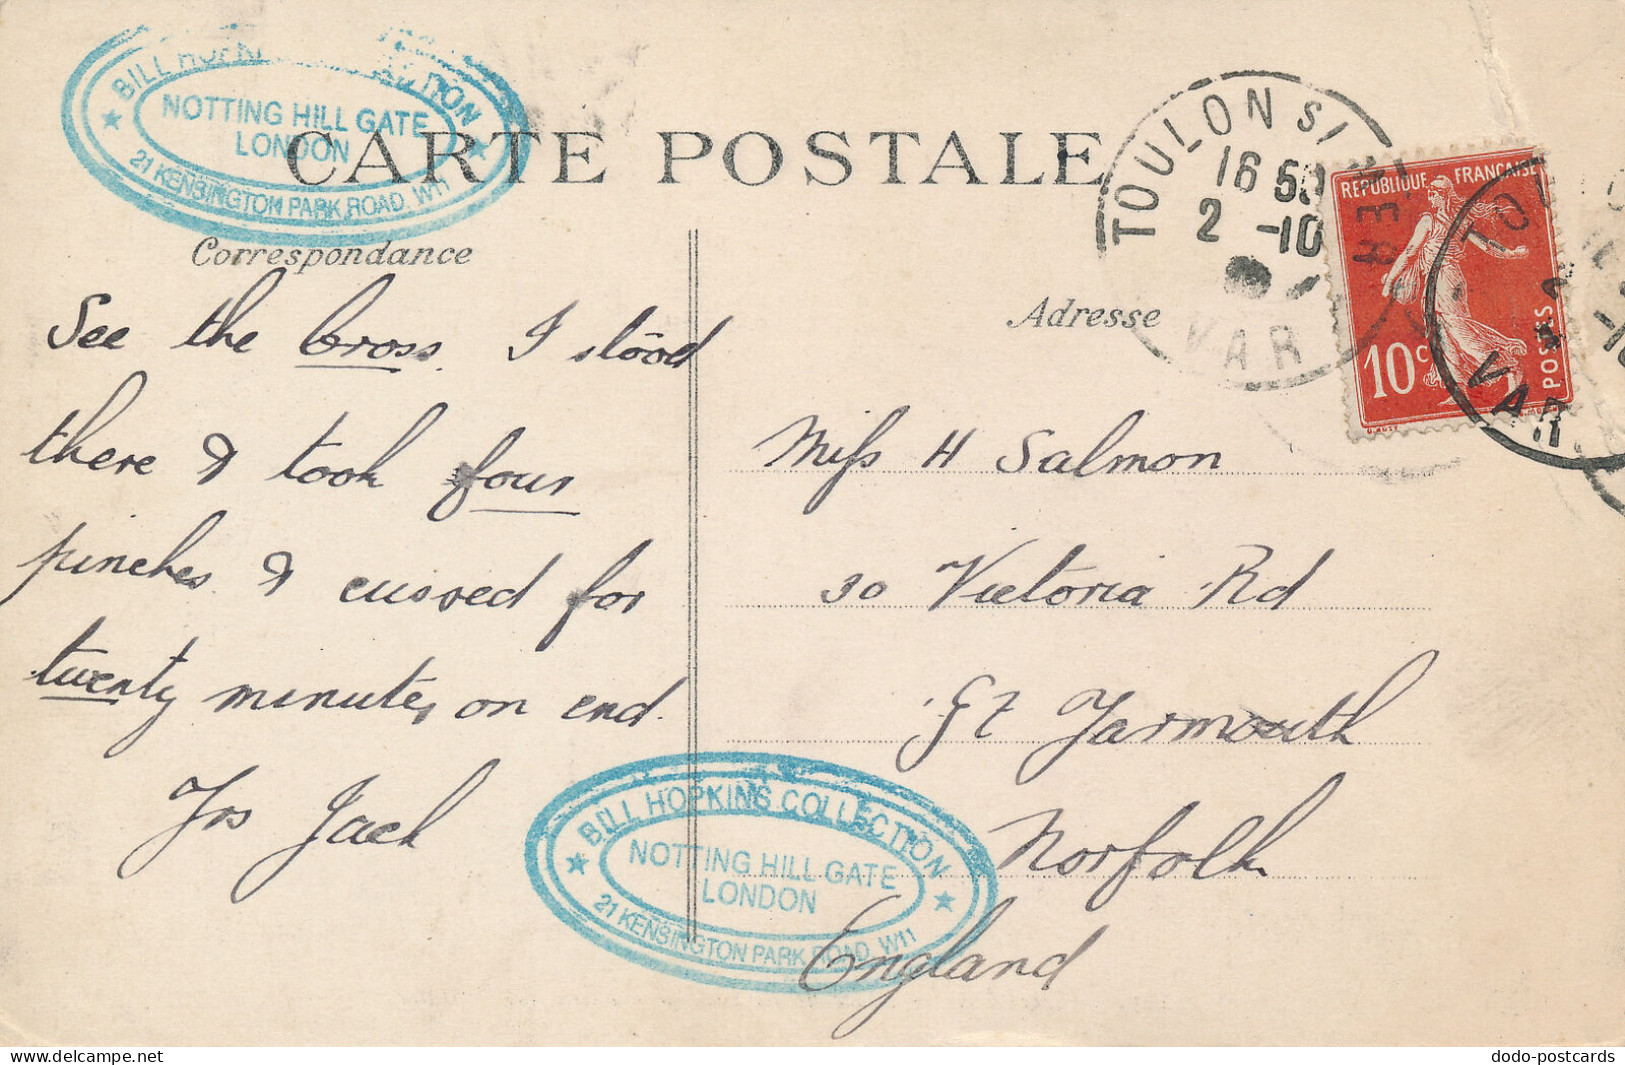 BILL HOPKINS COLLECTION
NOTTING HILL GATE
LONDON
21 KENSINGTON PARK ROAD. W11
CARTE POSTALE
Correspondance
Adresse
TOULON S/ MER
16 50
2 -10
VAR
RÉPUBLIQUE FRANÇAISE
10 c
POSTES
TOU
VAR
See the Cross. I stood
there & took four
pinches & cussed for
twenty minutes on end.
Yrs Jack
Miss H Salmon
30 Victoria Rd
Gt Yarmouth
Norfolk
England
BILL HOPKINS COLLECTION
NOTTING HILL GATE
LONDON
21 KENSINGTON PARK ROAD. W11
delcampe.net
dodo-postcards